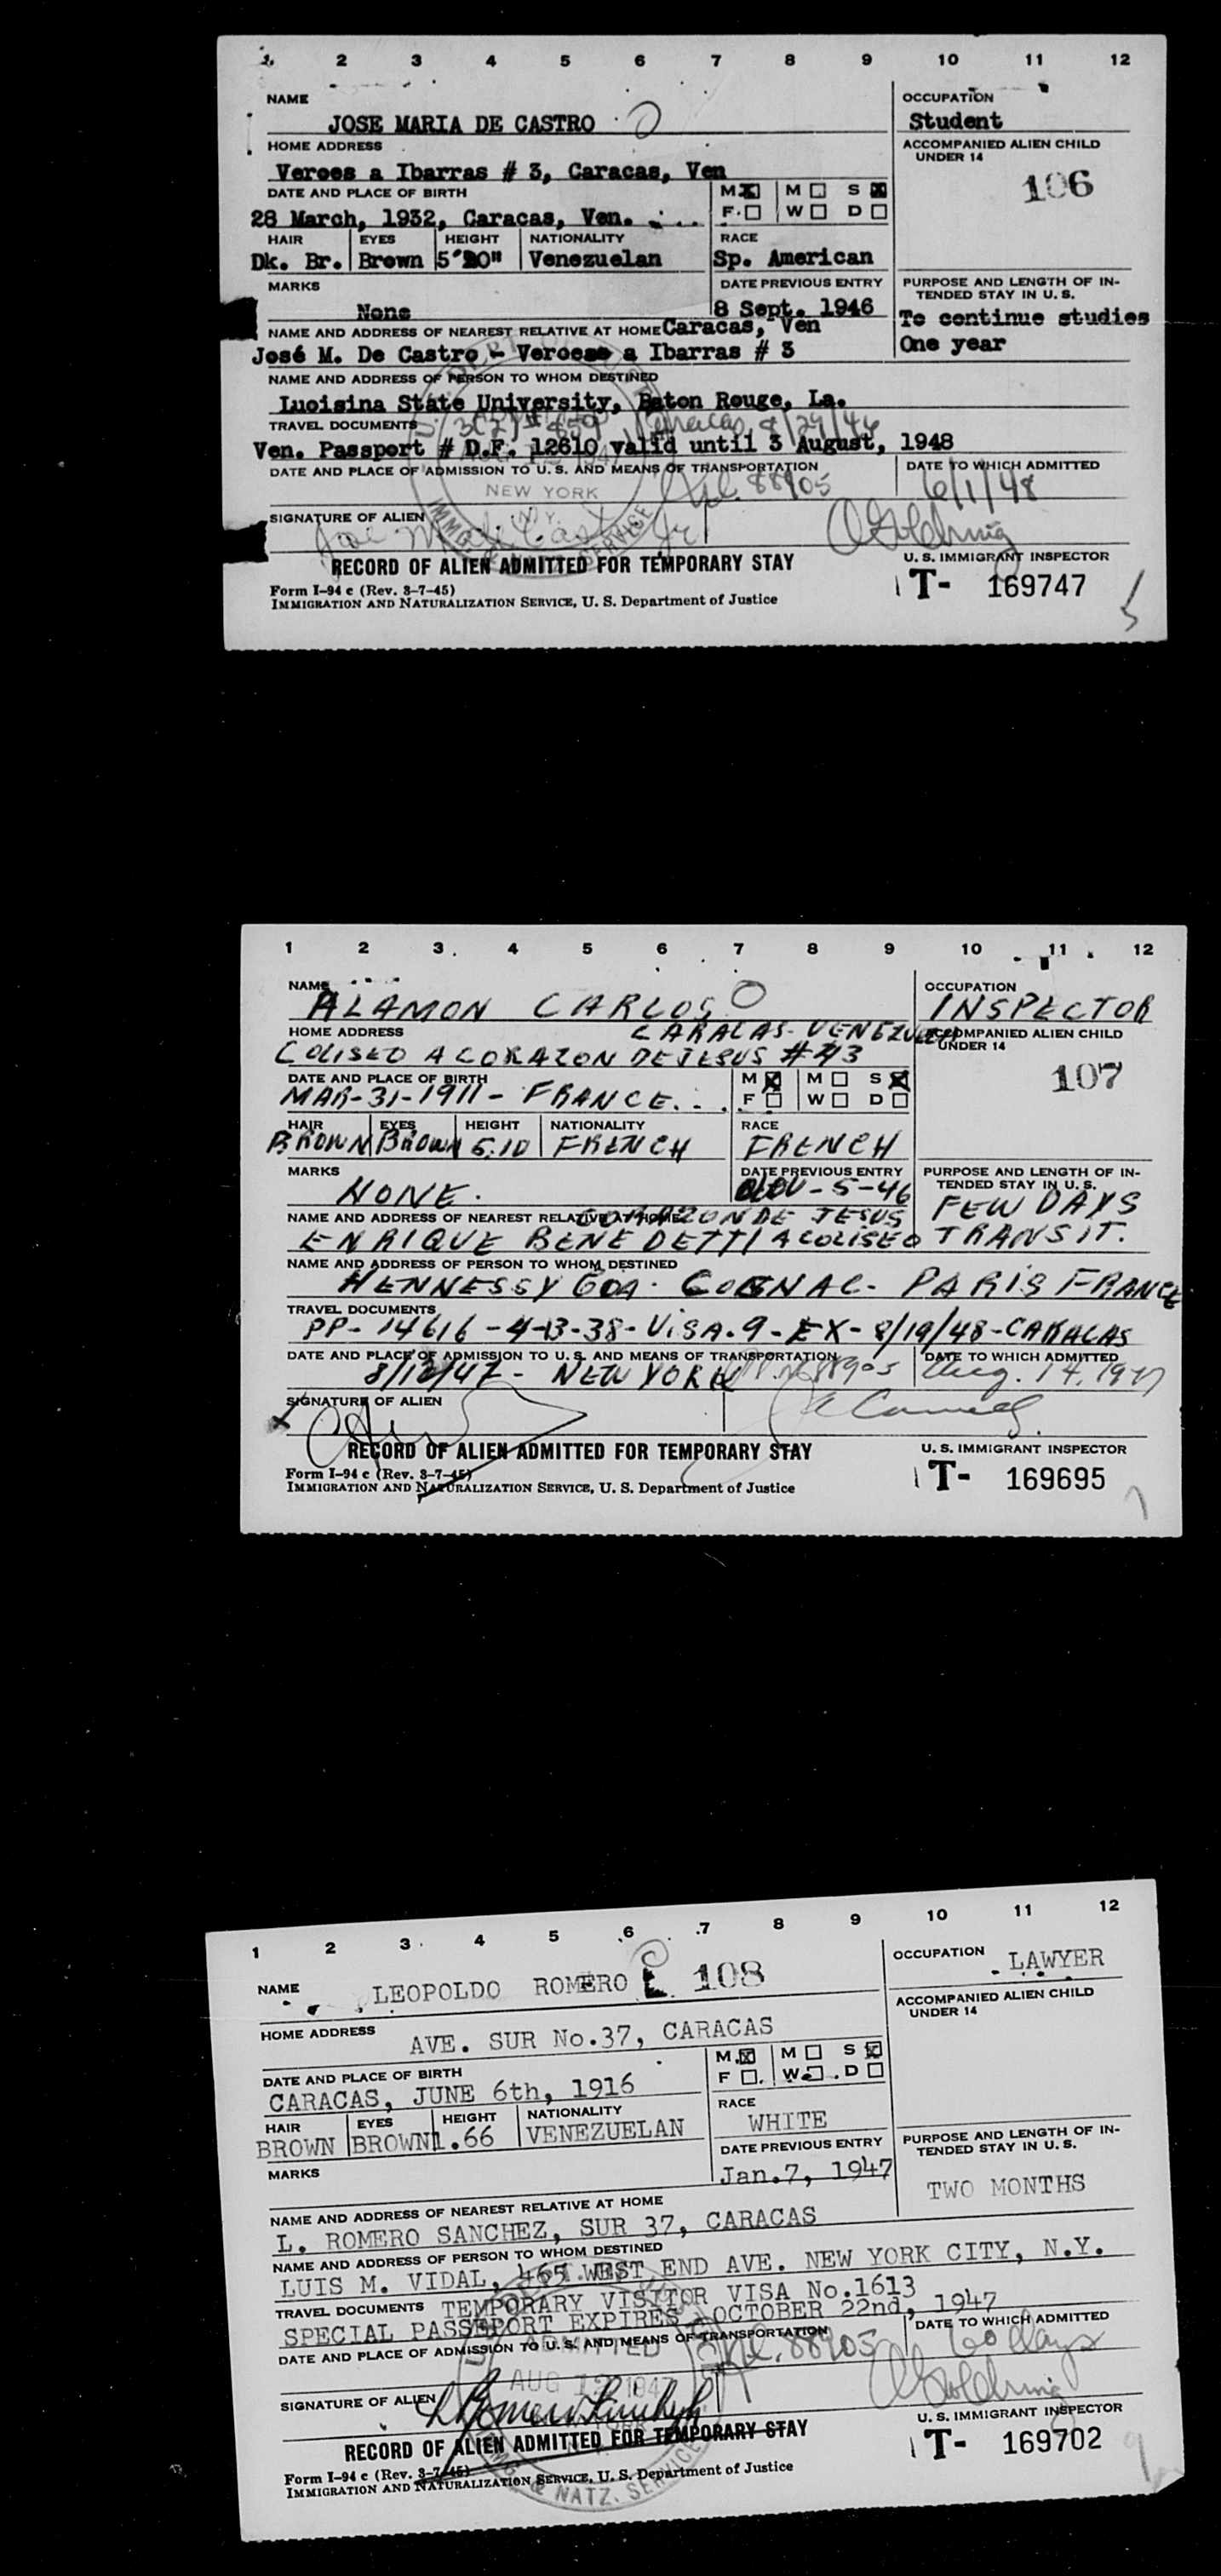 1 2 3 4 5 6 7 8 9 10 11 12
NAME
OCCUPATION
JOSE MARIA DE CASTRO
Student
HOME ADDRESS
ACCOMPANIED ALIEN CHILD
UNDER 14
Veroes a Ibarras # 3, Caracas, Ven
106
DATE AND PLACE OF BIRTH
M ☒ M ☐ S ☒
28 March, 1932, Caracas, Ven.
F ☐ W ☐ D ☐
HAIR EYES HEIGHT NATIONALITY RACE
Dk. Br. Brown Venezuelan Sp. American
MARKS
DATE PREVIOUS ENTRY
PURPOSE AND LENGTH OF IN-
TENDED STAY IN U. S.
None
8 Sept. 1946
To continue studies
NAME AND ADDRESS OF NEAREST RELATIVE AT HOME Caracas, Ven
One year
José M. De Castro - Veroes a Ibarras # 3
NAME AND ADDRESS OF PERSON TO WHOM DESTINED
Luoisina State University, Baton Rouge, La.
TRAVEL DOCUMENTS
Caracas, 8/29/46
Ven. Passport # D.F. 12610 valid until 3 August, 1948
DATE AND PLACE OF ADMISSION TO U. S. AND MEANS OF TRANSPORTATION
DATE TO WHICH ADMITTED
NEW YORK
88905
6/1/48
SIGNATURE OF ALIEN
N.Y.
RECORD OF ALIEN ADMITTED FOR TEMPORARY STAY
U. S. IMMIGRANT INSPECTOR
Form I-94 c (Rev. 8-7-45)
IMMIGRATION AND NATURALIZATION SERVICE, U. S. Department of Justice
T- 169747
1 2 3 4 5 6 7 8 9 10 11 12
NAME
OCCUPATION
ALAMON CARLOS
INSPECTOR
HOME ADDRESS
CARACAS - VENEZUELA
ACCOMPANIED ALIEN CHILD
UNDER 14
COLISEO A CORAZON DE JESUS # 43
107
DATE AND PLACE OF BIRTH
M ☒ M ☐ S ☒
MAR-31-1911 - FRANCE
F ☐ W ☐ D ☐
HAIR EYES HEIGHT NATIONALITY RACE
BROWN BROWN 5.10 FRENCH FRENCH
MARKS
DATE PREVIOUS ENTRY
PURPOSE AND LENGTH OF IN-
TENDED STAY IN U. S.
NONE.
NOV-5-46
FEW DAYS
NAME AND ADDRESS OF NEAREST RELATIVE AT HOME CORAZON DE JESUS
ENRIQUE BENEDETTI A COLISEO
TRANSIT.
NAME AND ADDRESS OF PERSON TO WHOM DESTINED
HENNESSY COGNAC - PARIS FRANCE
TRAVEL DOCUMENTS
PP- 14616 - 4-13-38 - VISA. 9 - EX - 8/19/48 - CARACAS
DATE AND PLACE OF ADMISSION TO U. S. AND MEANS OF TRANSPORTATION
DATE TO WHICH ADMITTED
8/12/47 - NEW YORK 88905
Aug. 14, 1947
SIGNATURE OF ALIEN
RECORD OF ALIEN ADMITTED FOR TEMPORARY STAY
U. S. IMMIGRANT INSPECTOR
Form I-94 c (Rev. 8-7-45)
IMMIGRATION AND NATURALIZATION SERVICE, U. S. Department of Justice
T- 169695
1 2 3 4 5 6 7 8 9 10 11 12
NAME
OCCUPATION
LEOPOLDO ROMERO 108
LAWYER
HOME ADDRESS
ACCOMPANIED ALIEN CHILD
UNDER 14
AVE. SUR No.37, CARACAS
DATE AND PLACE OF BIRTH
M ☒ M ☐ S ☒
CARACAS, JUNE 6th, 1916
F ☐ W ☐ D ☐
HAIR EYES HEIGHT NATIONALITY RACE
BROWN BROWN 1.66 VENEZUELAN WHITE
MARKS
DATE PREVIOUS ENTRY
PURPOSE AND LENGTH OF IN-
TENDED STAY IN U. S.
Jan.7, 1947
TWO MONTHS
NAME AND ADDRESS OF NEAREST RELATIVE AT HOME
L. ROMERO SANCHEZ, SUR 37, CARACAS
NAME AND ADDRESS OF PERSON TO WHOM DESTINED
LUIS M. VIDAL, 465 WEST END AVE. NEW YORK CITY, N.Y.
TRAVEL DOCUMENTS TEMPORARY VISITOR VISA No.1613
SPECIAL PASSEPORT EXPIRES OCTOBER 22nd, 1947
DATE AND PLACE OF ADMISSION TO U. S. AND MEANS OF TRANSPORTATION
DATE TO WHICH ADMITTED
ADMITTED
88905
60 days
AUG 1947
SIGNATURE OF ALIEN
RECORD OF ALIEN ADMITTED FOR TEMPORARY STAY
U. S. IMMIGRANT INSPECTOR
Form I-94 c (Rev. 8-7-45)
IMMIGRATION AND NATURALIZATION SERVICE, U. S. Department of Justice
T- 169702
& NATZ. SERVICE